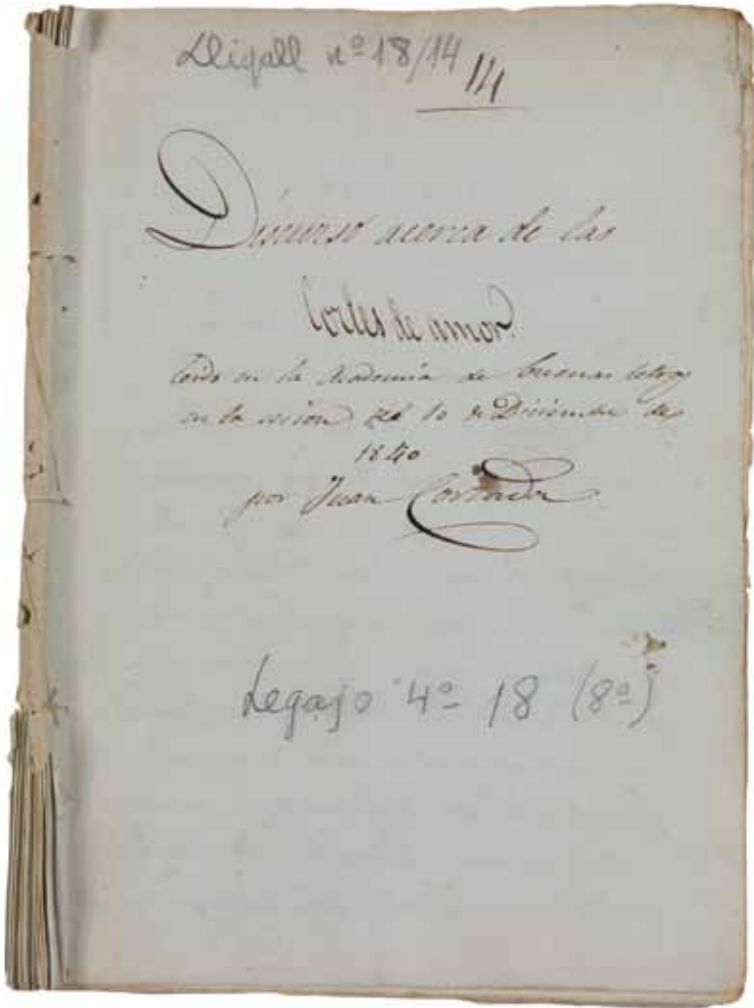 Lligall nº 18/14
14
Discurso acerca de las
Cortes de amor
leido en la Academia de buenas letras
en la sesion del 10 de Diciembre de
1840
por Juan Cortada
Legajo 4º 18 (8º)